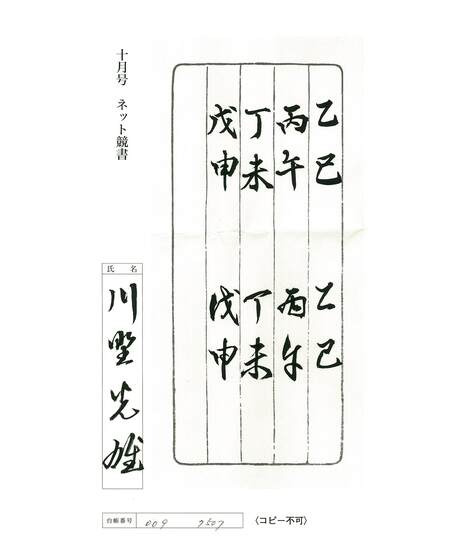 乙巳 乙巳
丙午 丙午
丁未 丁未
戊申 戊申
十月号 ネット競書
氏名
川野光雄
台帳番号 009 7507
〈コピー不可〉